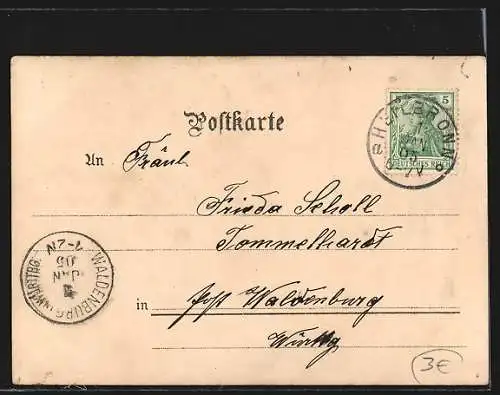 Postkarte
An Fräul.
Frieda Scholl
Tommelhardt
in post Waldenburg
Württg
5 5
DEUTSCHES REICH
HEILBRONN
WALDENBURG in WÜRTTBG.
1-2N
JAN
05
3€